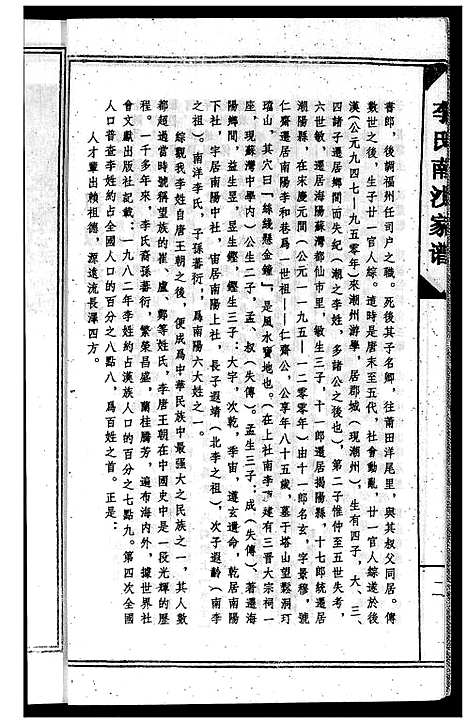 李氏南沙家谱
書郎，後謫福州任司户之職。死後其子名卿，往莆田洋尾里，與其叔父同居。傳
數世之後，生子廿一官人綜。這時是唐末至五代，社會動亂，廿一官人綜遂於後
漢（公元九四七—九五零年）來潮州游學，居郡城（現潮州），生有四子，大、三、
四諸子遷居鄉間而失紀（潮之李姓，多諸公之後也），第二子惟仲至五世失考，
六世敏，遷居海陽蘇灣都仙市里，敏生三子，十一郎遷居揭陽縣，十七郎統遷居
潮陽縣，在宋慶元間（公元一一九五—一二零零年）由十一郎名玄，字景穆，號
仁齋遷居南陽李和巷爲一世祖——仁齋公，公享年八十五歲，墓于塔山望髻洞玎
璫山，其穴曰『絲綫懸金鐘』，是風水寶地也。（在上社南李 建有三晋大宗祠一
座，現蘇灣中學内）公生二子，孟、叔（失傳）。孟生三子：成（失傳）、著遷海
陽鄉間，益生翌，昱生鏗，鏗生三子：大字，次乾，季宙，遵玄遺命，乾居南陽
下社，字居南陽中社，宙居南陽上社，長子遐靖（北李之祖），次子遐齡（南李
之祖）。南洋李氏，子孫蕃衍，爲南陽六大姓之一。
綜觀我李姓自唐王朝之後，便成爲中華民族中最强大之民族之一，其人數
都超過當時號稱望族的崔、盧、鄭等姓氏，李唐王朝在中國史中是一段光輝的歷
程。一千多年來，李氏裔孫蕃衍，繁榮昌盛，蘭桂騰芳，遍布海内外，據世界社
會文獻出版社記載：一九八二年李姓約占漢族人口的百分之七點九。第四次全國
人口普查李姓約占全國人口的百分之八點八，爲百姓之首。正是：
人才輩出賴祖德，源遠流長澤四方。
二